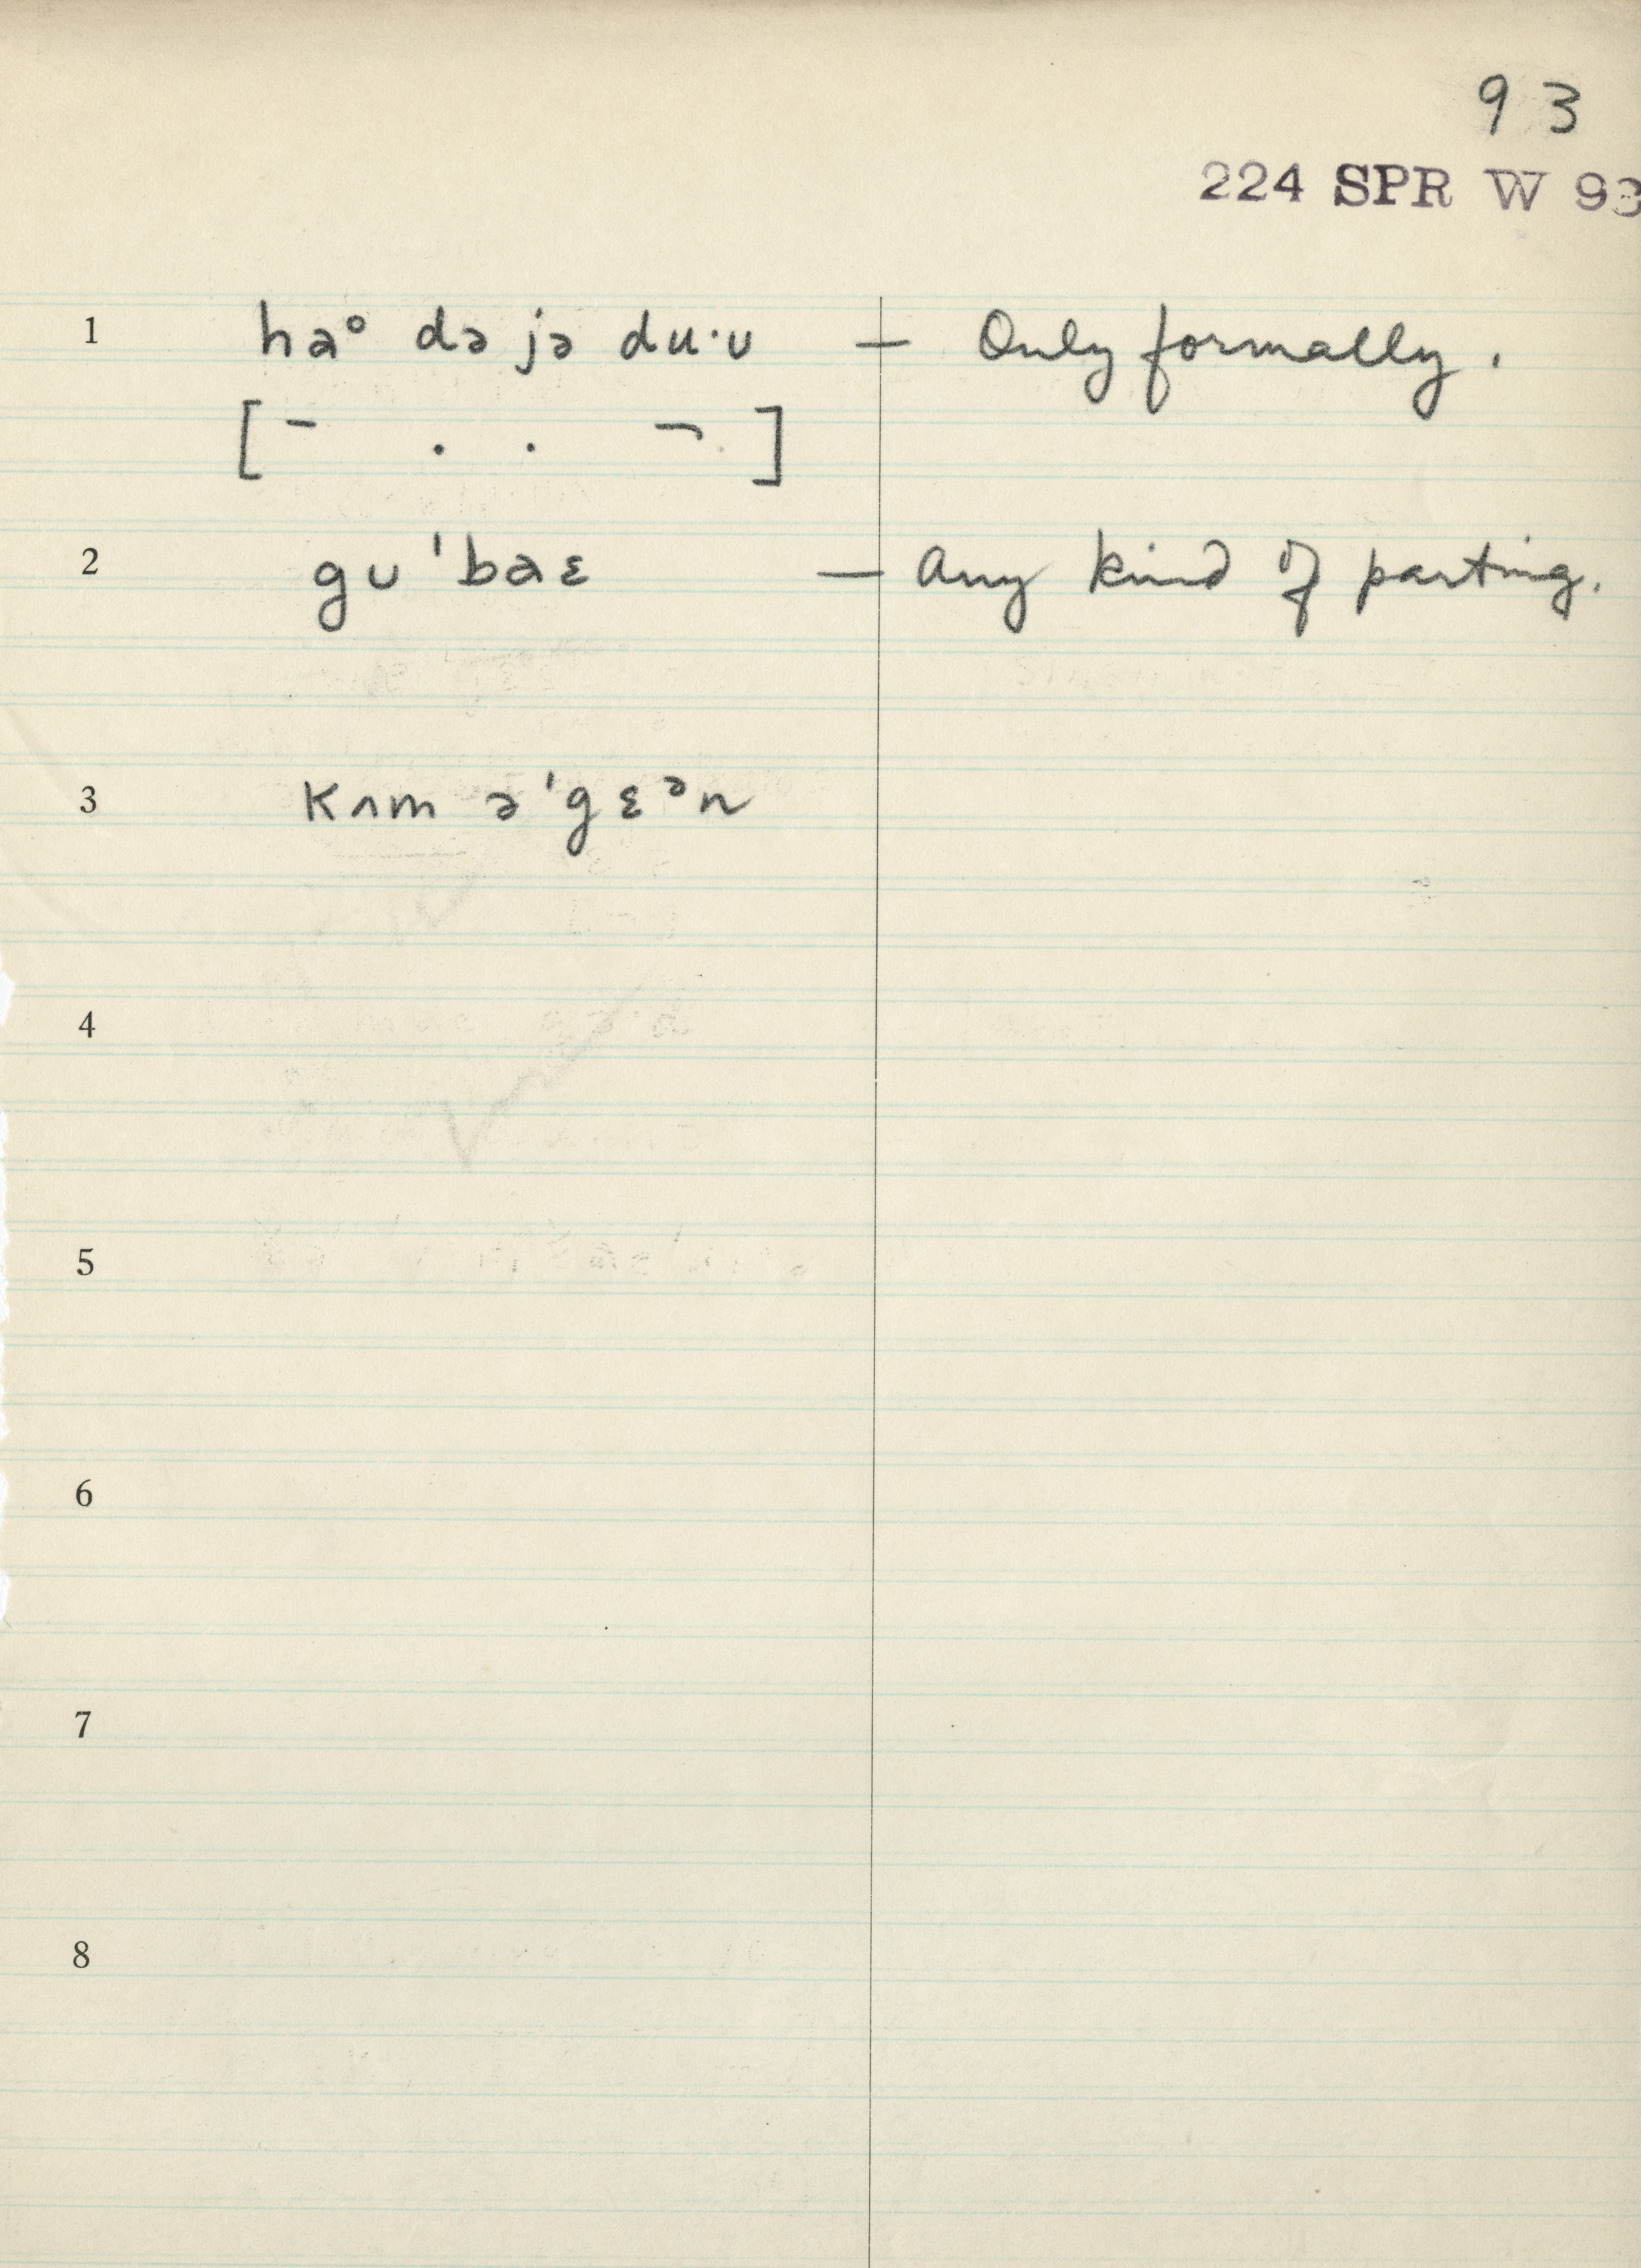 93
224 SPR W 93
1 haᵒ də jə du·ᴜ — Only formally.
[ ¯ . . ¬ ]
2 gᴜ'baɛ — Any kind of parting.
3 kʌm ə'gɛᵊn
4
5
6
7
8